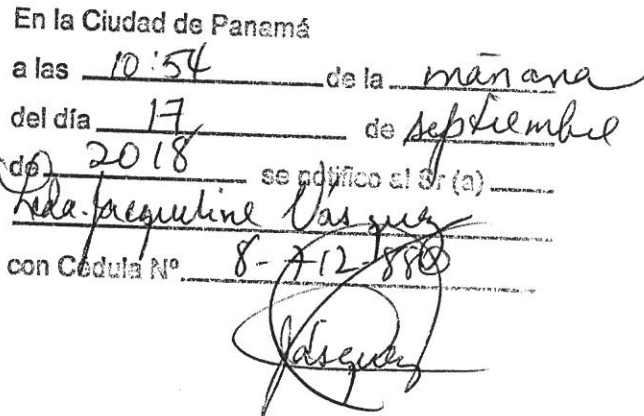 En la Ciudad de Panamá
a las 10:54 de la mañana
del día 17 de septiembre
de 2018 se notifico al Sr (a)
Lcda. Jacqueline Vásquez
con Cédula Nº 8-712-88
Vásquez